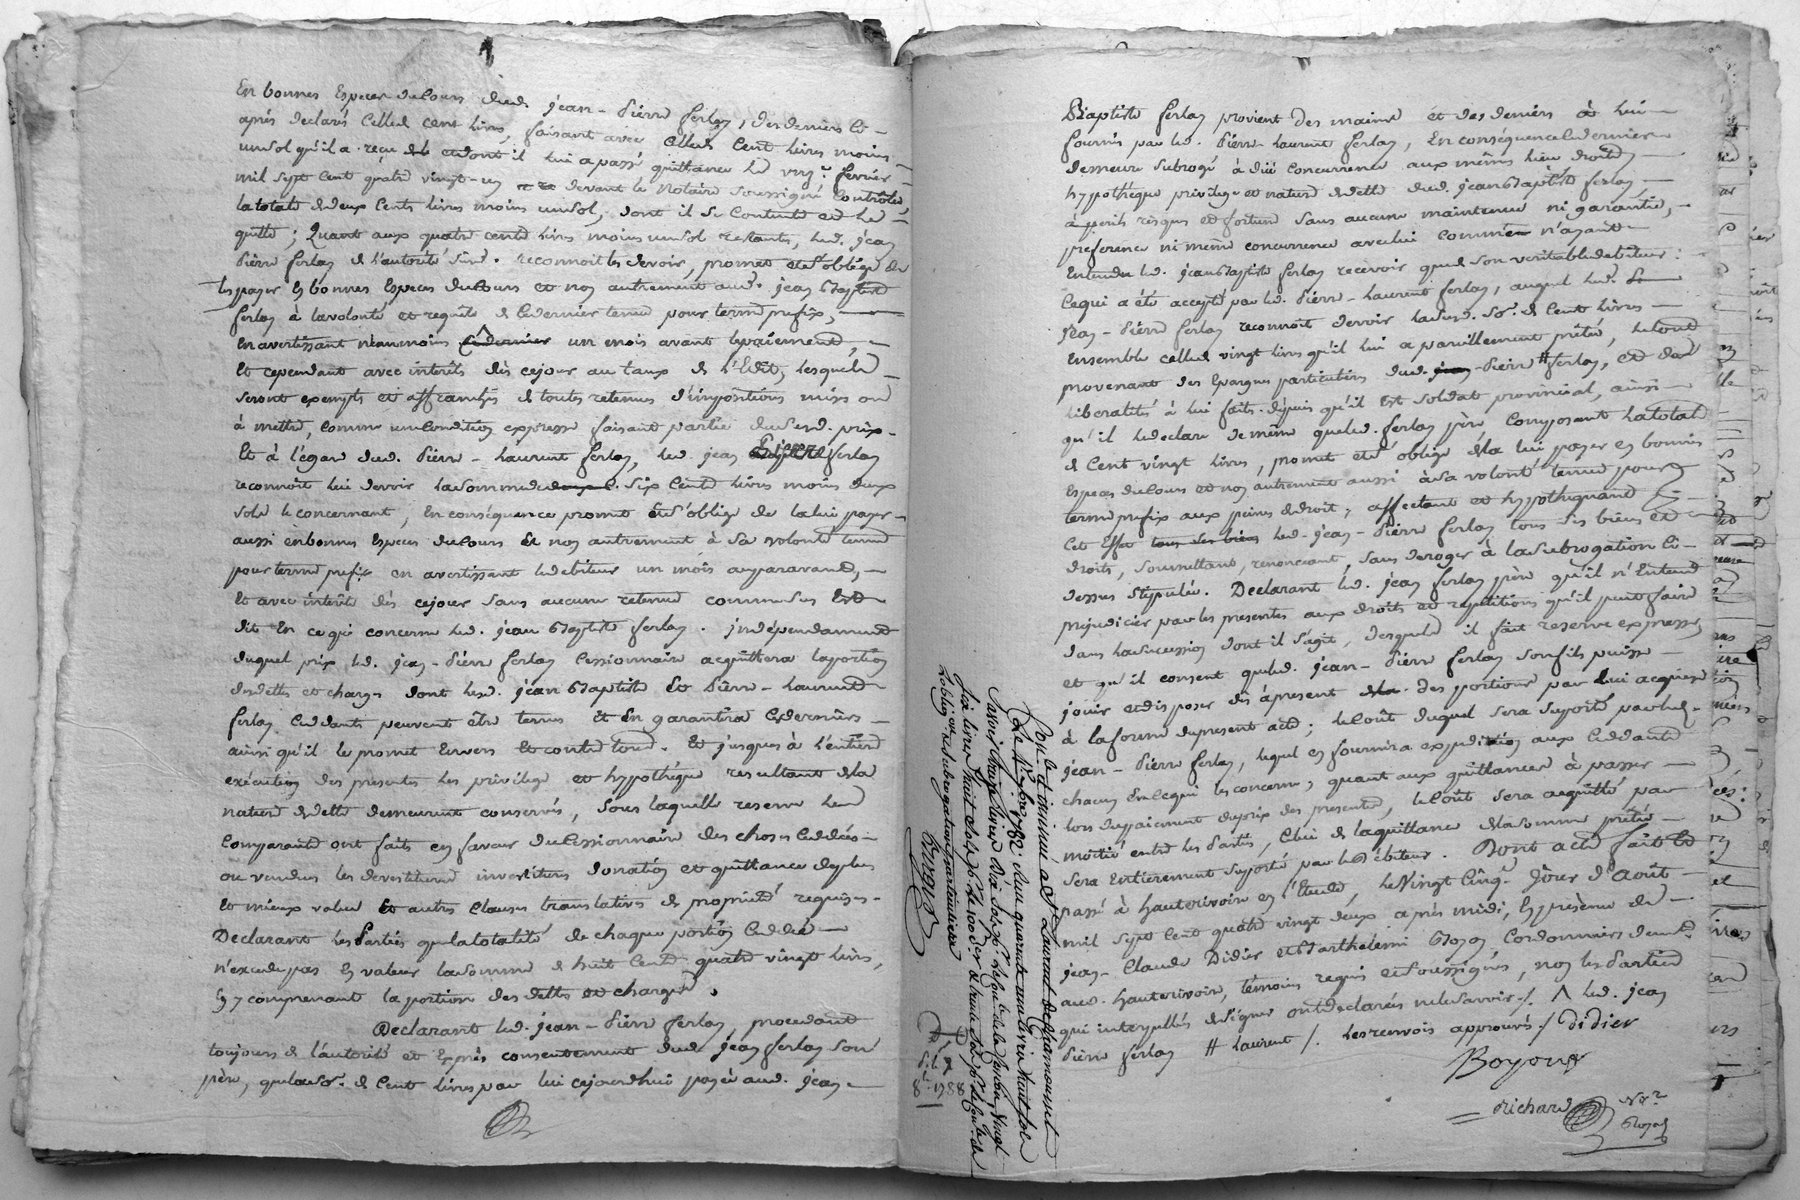 En bonnes Especes du Cours dud. jean-Pierre ferlay, des deniers cy-
aprés declarés Celled. cent livres, faisant avec Celled. Cent livres moins
un sol qu'il a reçu et dont il lui a passé quittance Le fevrier
mil sept cent quatre vingt-un devant le Notaire Soussigné Controllée,
la totale de deux Cents livres moins un sol, dont il se Contente et Le
quitte; Quant aux quatre cents livres moins un sol restants, led. jean
Pierre ferlay de l'autorité susd. reconnoit les devoir, promet et s'oblige de
les payer En bonnes Especes du Cours et non autrement aud. jean Baptiste
ferlay à la volonté et requete de Ce dernier tenue pour terme prefix,
en avertissant néanmoins un mois avant le paiement,
Et cependant avec interêts dès ce jour au taux de l'Edit, lesquels
seront exempts et affranchis de toutes retenues d'impositions mises ou
à mettre, comme une Condition expresse faisant partie dud. prix.
Et à l'égard dud. Pierre-Laurent ferlay, led. jean Pierre ferlay
reconnoit lui devoir la somme de six Cents livres moins deux
sols le concernant, En conséquence promet et s'oblige de la lui payer
aussi en bonnes Especes du Cours et non autrement à sa volonté tenue
pour terme prefix en avertissant le debiteur un mois auparavant,
Et avec interêts dès ce jour sans aucune retenue comme sus Est
dit En ce qui concerne led. jean Baptiste ferlay. Indépendamment
duquel prix led. jean-Pierre ferlay Cessionnaire acquittera la portion
des dettes et charges dont lesd. jean Baptiste Et Pierre-Laurent
ferlay Cedants peuvent être tenus Et En garantira Ces derniers
ainsi qu'il le promet Envers Et contre tous. Et jusques à l'entiere
exécution des presentes les privilege et hypothéque resultants de la
nature de dette demeurent conservés, Sous laquelle reserve les
Comparants ont faits en faveur du Cessionnaire des choses Cedées
ou vendues les devestitures investitures donation et quittance de plus
Et mieux value Et autres Clauses translatives de propriété requises.
Declarant les Parties que la totalité de chaque portion Cedée
n'excede pas En valeur la somme de huit Cents quatre vingt livres,
En y comprenant la portion des dettes et charges.
Declarant led. jean-Pierre ferlay, procedant
toujours de l'autorité et Exprès consentement dud. jean ferlay son
père, que la so.e de Cent livres par lui cejourdhui payée aud. jean
Baptiste ferlay provient des mains et des deniers à lui
fournis par led. Pierre-Laurent ferlay, En conséquence Ce dernier
demeure Subrogé à dûe concurrence aux mêmes lieu droits
hypothéque privilege et nature de dette dud. jean Baptiste ferlay
à perils risques et fortune sans aucune maintenue ni garantie,
preference ni même concurrence avec lui comme n'ayant
Entendu led. jean Baptiste ferlay recevoir que de son veritable debiteur:
Ce qui a été accepté par led. Pierre-Laurent ferlay, auquel led.
Jean-Pierre ferlay reconnoit devoir lad. so.e de Cent livres
Ensemble celle de vingt livres qu'il lui a pareillement prêté, le tout
provenant des Epargnes particulieres dud. Pierre # ferlay, et des
liberalités à lui faites depuis qu'il Est soldat provincial, ainsi
qu'il le declare de même que led. ferlay père, Composant la totale
de Cent vingt livres, promet et s'oblige de la lui payer en bonnes
Especes du Cours et non autrement aussi à sa volonté tenue pour
terme prefix aux peines de droit; affectant et hypothéquant à
Cet Effet led. jean-Pierre ferlay tous ses biens et
droits, soumettant, renonceant, sans deroger à la subrogation Ci-
dessus Stipulée. Declarant led. jean ferlay père qu'il n'Entend
préjudicier par les presentes aux droits et repetitions qu'il peut faire
dans la succession dont il s'agit, desquels il fait reserve expresse
et qu'il consent que led. jean-Pierre ferlay son fils puisse
jouir et disposer dès à present des portions par lui acquises
à la forme du present acte; le Coût duquel sera suporté par led.
jean-Pierre ferlay, lequel en fournira expedition aux Cedants
chacun En ce qui les concerne, quant aux quittances à passer
lors du paiement du prix des presentes, le Coût sera acquitté par
moitié entre les Parties, Celui de la quittance de la somme prêtée
sera Entierement suporté par le Debiteur. Dont acte fait et
passé à hauterivoire en l'Etude, le Vingt Cinq.e jour d'août
mil sept cent quatre vingt deux après midi, En présence de
jean-Claude Didier et Barthelemi Boyon Cordonniers dem.t
aud. hauterivoire, témoins requis et soussignés, non les Parties
qui interpellés de signer ont declarés ne le Savoir./. Λ led. jean
Pierre ferlay # Laurent /. les renvois approuvés./ Didier
Boyon
Richard N.re
Royal
Con.lé et insinué a St Laurent de chamousset
Le 7bre 1782. reçu quarante une livre huit sols
Savoir